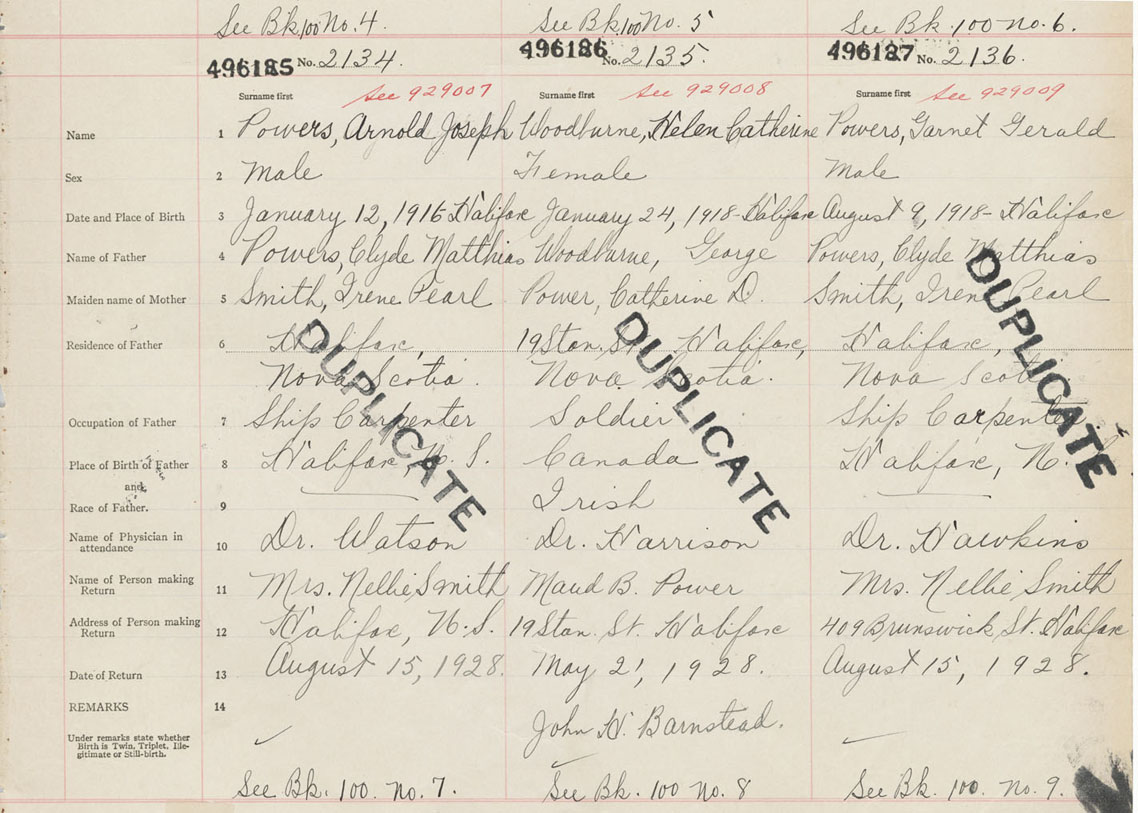 See Bk. 100 No. 4. See Bk. 100 No. 5 See Bk. 100 no. 6.
496185 No. 2134. 496186 No. 2135. 496187 No. 2136.
Surname first See 929007 Surname first See 929008 Surname first See 929009
Name 1 Powers, Arnold Joseph Woodburne, Helen Catherine Powers, Garnet Gerald
Sex 2 Male Female Male
Date and Place of Birth 3 January 12, 1916 Halifax January 24, 1918 - Halifax August 9, 1918 - Halifax
Name of Father 4 Powers, Clyde Matthias Woodburne, George Powers, Clyde Matthias
Maiden name of Mother 5 Smith, Irene Pearl Power, Catherine D. Smith, Irene Pearl
Residence of Father 6 Halifax, 19 Stan. St. Halifax, Halifax,
Nova Scotia. Nova Scotia. Nova Scotia
DUPLICATE DUPLICATE DUPLICATE
Occupation of Father 7 Ship Carpenter Soldier Ship Carpenter.
Place of Birth of Father 8 Halifax N. S. Canada Halifax, N. S.
and
Race of Father. 9 Irish
Name of Physician in
attendance 10 Dr. Watson Dr. Harrison Dr. Hawkins
Name of Person making
Return 11 Mrs. Nellie Smith Maud B. Power Mrs. Nellie Smith
Address of Person making
Return 12 Halifax, N.S. 19 Stan. St. Halifax 409 Brunswick St. Halifax
Date of Return 13 August 15, 1928. May 2, 1928. August 15, 1928.
REMARKS 14 John H. Barnstead.
Under remarks state whether
Birth is Twin, Triplet, Ille-
gitimate or Still-birth.
See Bk. 100. No. 7. See Bk. 100 No. 8 See Bk. 100. No. 9.